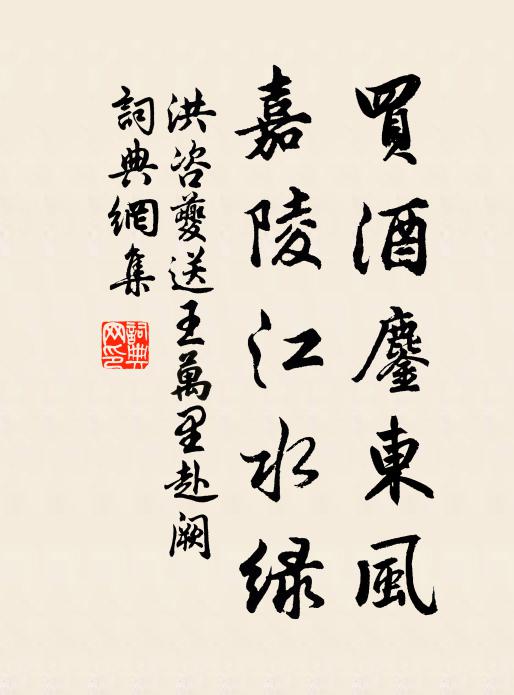 買酒鏖東風
嘉陵江水緑
洪咨夔送王萬里赴闕
詞典網集
詞典網印